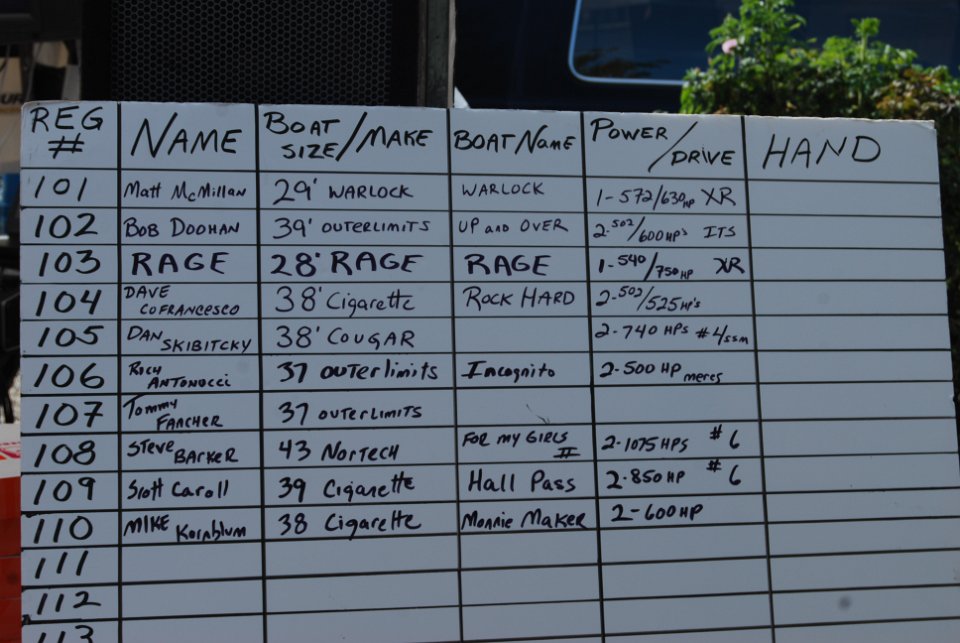 REG # NAME BOAT SIZE/MAKE BOAT NAME POWER/DRIVE HAND
101 Matt McMillan 29' WARLOCK WARLOCK 1-572/630HP XR
102 BOB DOOHAN 39' OUTERLIMITS UP and OVER 2-502/600HP's ITS
103 RAGE 28' RAGE RAGE 1-540/750HP XR
104 DAVE COFRANCESCO 38' Cigarette ROCK HARD 2-502/525HP's
105 DAN SKIBITCKY 38' COUGAR 2-740 HPS #4/SSM
106 Rich ANTONOCCI 37 OUTERlimits Incognito 2-500 HP mercs
107 Tommy FANCHER 37 OUTERLIMITS
108 Steve BARKER 43 NORTECH FOR MY GIRLS II 2-1075 HPS #6
109 Scott Caroll 39 Cigarette Hall Pass 2-850 HP #6
110 MIKE Kornblum 38 Cigarette Monnie MAKER 2-600 HP
111
112
113